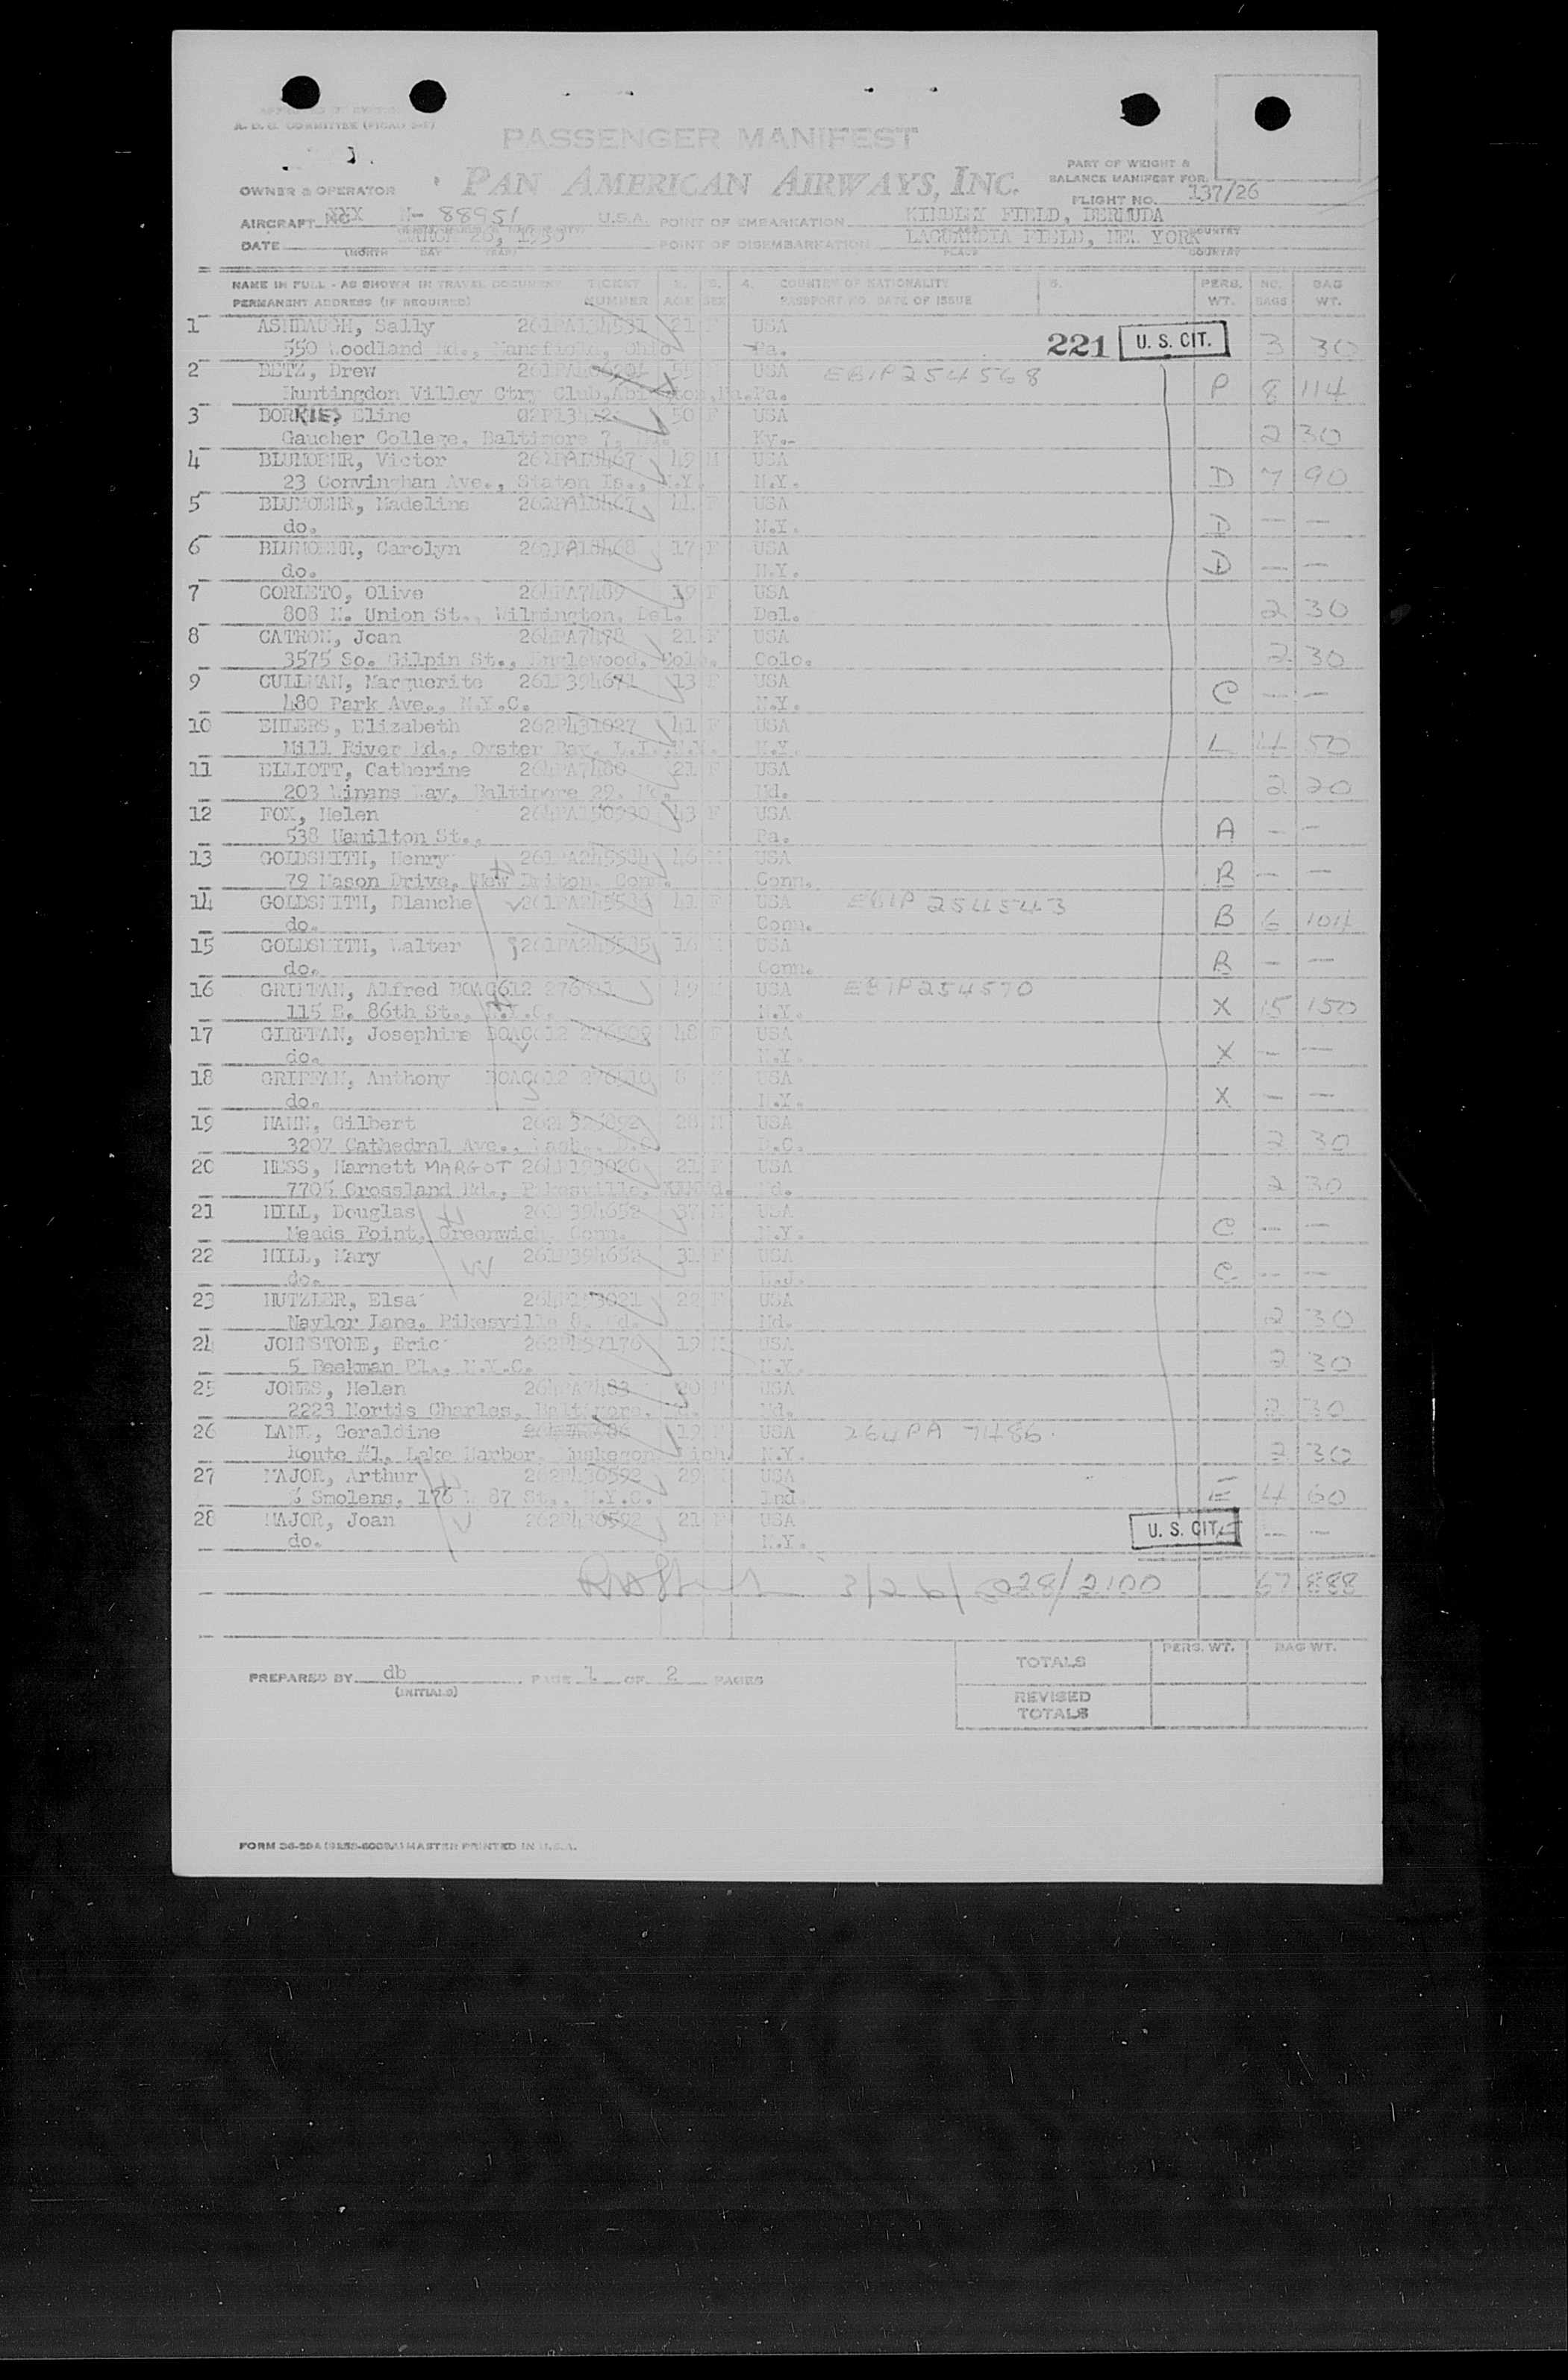 A. D. B. COMMITTEE (PICAO
PASSENGER MANIFEST
PAN AMERICAN AIRWAYS, INC.
OWNER & OPERATOR
PART OF WEIGHT &
BALANCE MANIFEST FOR
FLIGHT NO. 137/26
AIRCRAFT NC XXX N- 88951 U.S.A. POINT OF EMBARKATION KINDLEY FIELD, BERMUDA
DATE MARCH 26, 1950 POINT OF DISEMBARKATION LAGUARDIA FIELD, NEW YORK COUNTRY
(MONTH DAY YEAR) PLACE COUNTRY
NAME IN FULL - AS SHOWN IN TRAVEL DOCUMENT TICKET 4. COUNTRY OF NATIONALITY PERS. NO. BAG
PERMANENT ADDRESS (IF REQUIRED) NUMBER AGE SEX PASSPORT NO. DATE OF ISSUE WT. BAGS WT.
1 ASHBAUGH, Sally 21 F USA
550 Woodland Rd., Mansfield, Ohio Pa. 221 U. S. CIT. 3 30
2 BETZ, Drew 55 USA EBIP254568
Huntingdon Valley Ctry Club, Pa. P 8 114
3 BORK(IE) Eline 50 F USA
Gaucher College, Baltimore 7, Ky. 2 30
4 BLUMOEHR, Victor 262PA18467 49 M USA
23 Convingham Ave., Staten Is., N.Y. N.Y. D 7 90
5 BLUMOEHR, Madeline 262PA18467 41 F USA
do. N.Y. D — —
6 BLUMOEHR, Carolyn 262PA18468 17 F USA
do. N.Y. D — —
7 CORLETO, Olive 264PA7489 19 F USA
808 N. Union St., Wilmington, Del. Del. 2 30
8 CATRON, Joan 264PA7478 21 F USA
3575 So. Gilpin St., Englewood, Colo. Colo. 2 30
9 CULLMAN, Marguerite 261P394671 13 F USA
480 Park Ave., N.Y.C. N.Y. C — —
10 EHLERS, Elizabeth 262P431027 41 F USA
Mill River Rd., Oyster Bay, L.I., N.Y. N.Y. L 4 50
11 ELLIOTT, Catherine 264PA7480 21 F USA
203 Winans Way, Baltimore 29, Md. Md. 2 20
12 FOX, Helen 264PA150930 43 F USA
538 Hamilton St., Pa. A — —
13 GOLDSMITH, Henry 261PA245534 46 M USA
79 Mason Drive, New Briton, Conn. Conn. B — —
14 GOLDSMITH, Blanche 41 F USA EBIP 254543
do. Conn. B 6 104
15 GOLDSMITH, Walter 261PA245535 16 M USA
do. Conn. B — —
16 GRIFFAN, Alfred BOAC612 49 M USA EBIP254570
115 E. 86th St., N.Y.C. N.Y. X 15 150
17 GIRFFAN, Josephine BOAC612 48 F USA
do. N.Y. X — —
18 GRIFFAN, Anthony BOAC612 8 M USA
do. N.Y. X — —
19 HAHN, Gilbert 28 M USA
3207 Cathedral Ave., Wash. D.C. D.C. 2 30
20 HESS, Harnett MARGOT 264P193020 21 F USA
7705 Crossland Rd., Pikesville, Md. Md. 2 30
21 HILL, Douglas 261P394652 37 M USA
Meads Point, Greenwich, Conn. N.Y. C — —
22 HILL, Mary 261P394652 31 F USA
do. C — —
23 HUTZLER, Elsa 264P193021 22 F USA
Naylor Lane, Pikesville 8, Md. Md. 2 30
24 JOHNSTONE, Eric 262P437176 19 M USA
5 Beekman Pl., N.Y.C. N.Y. 2 30
25 JONES, Helen 264PA7483 20 F USA
2223 Nortis Charles, Baltimore, Md. 2 30
26 LANE, Geraldine 19 F USA 264PA 7486
Route #1, Lake Harbor, Muskegon Mich. N.Y. 2 30
27 MAJOR, Arthur 262P430592 29 M USA
% Smolens, 176 W 87 St., N.Y.C. Ind. E 4 60
28 MAJOR, Joan 262P430592 21 F USA U. S. CIT.
do. N.Y. E — —
3/26/50 28/2100 67 888
PREPARED BY db PAGE 1 OF 2 PAGES
(INITIALS)
PERS. WT. BAG WT.
TOTALS
REVISED
TOTALS
MASTER PRINTED IN U.S.A.